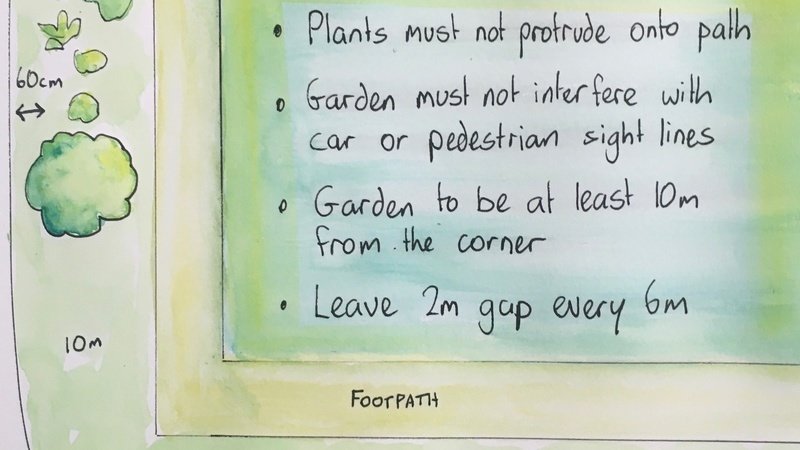 • Plants must not protrude onto path
60cm
• Garden must not interfere with
car or pedestrian sight lines
• Garden to be at least 10m
from the corner
• Leave 2m gap every 6m
10m
FOOTPATH